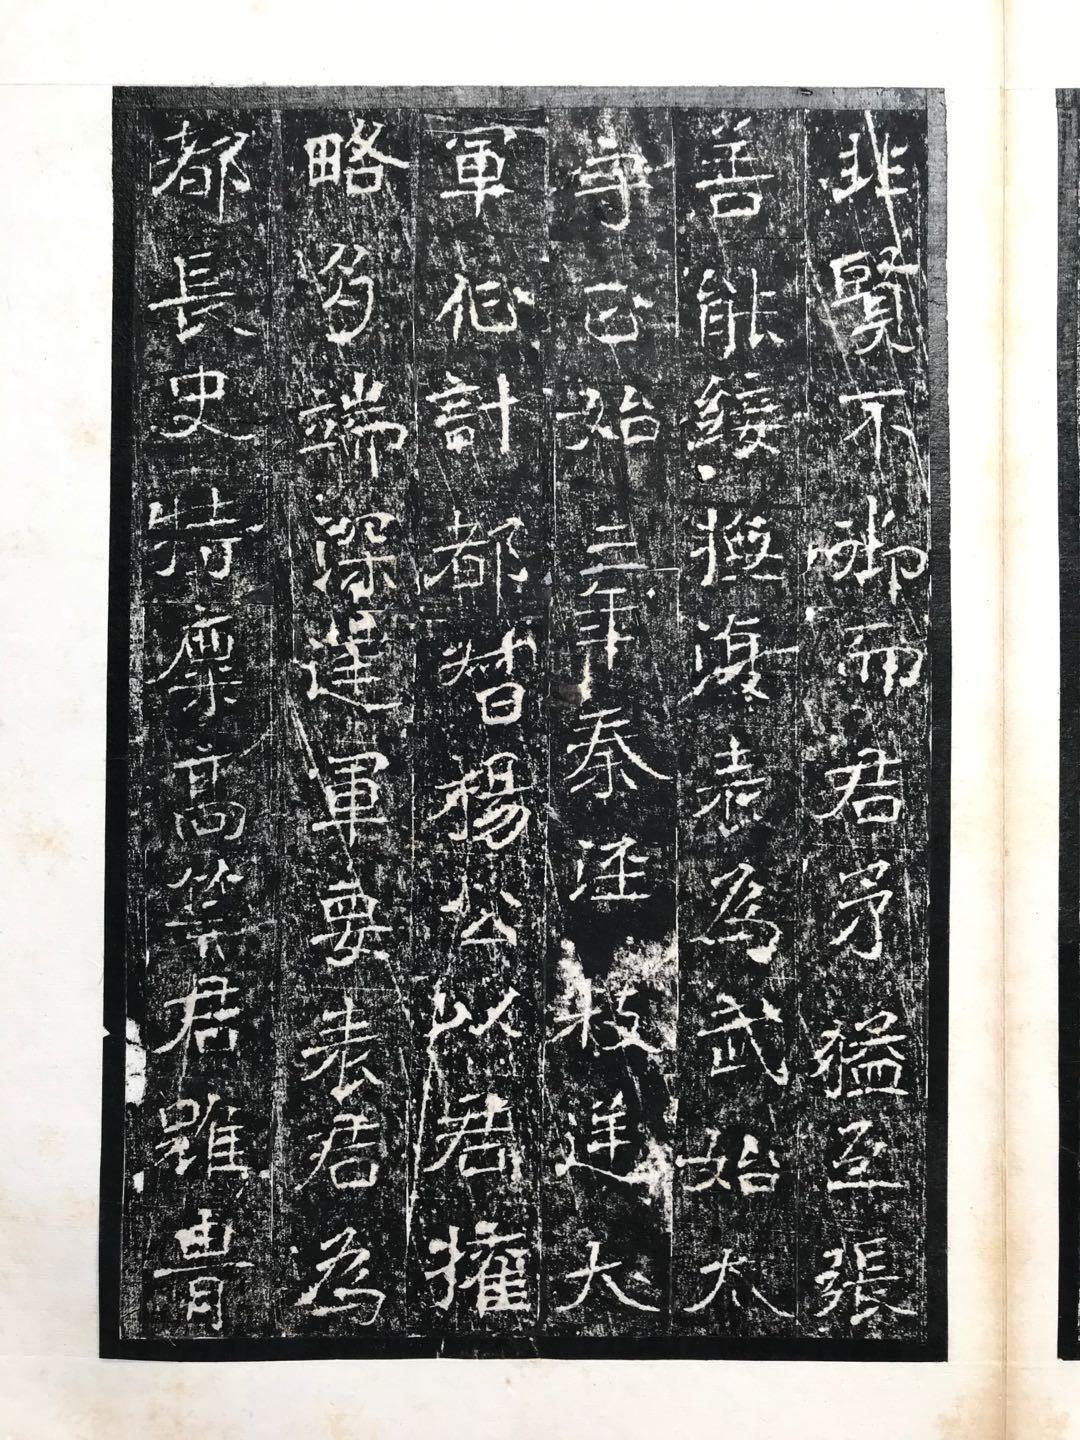 非賢不御而君矛猛互張
善能綏撫復表為武始太
守正始三年秦涇叛逆大
軍征計都督楊公以君權
略多端深達軍要表君為
都長史特稟高筭君雖胄